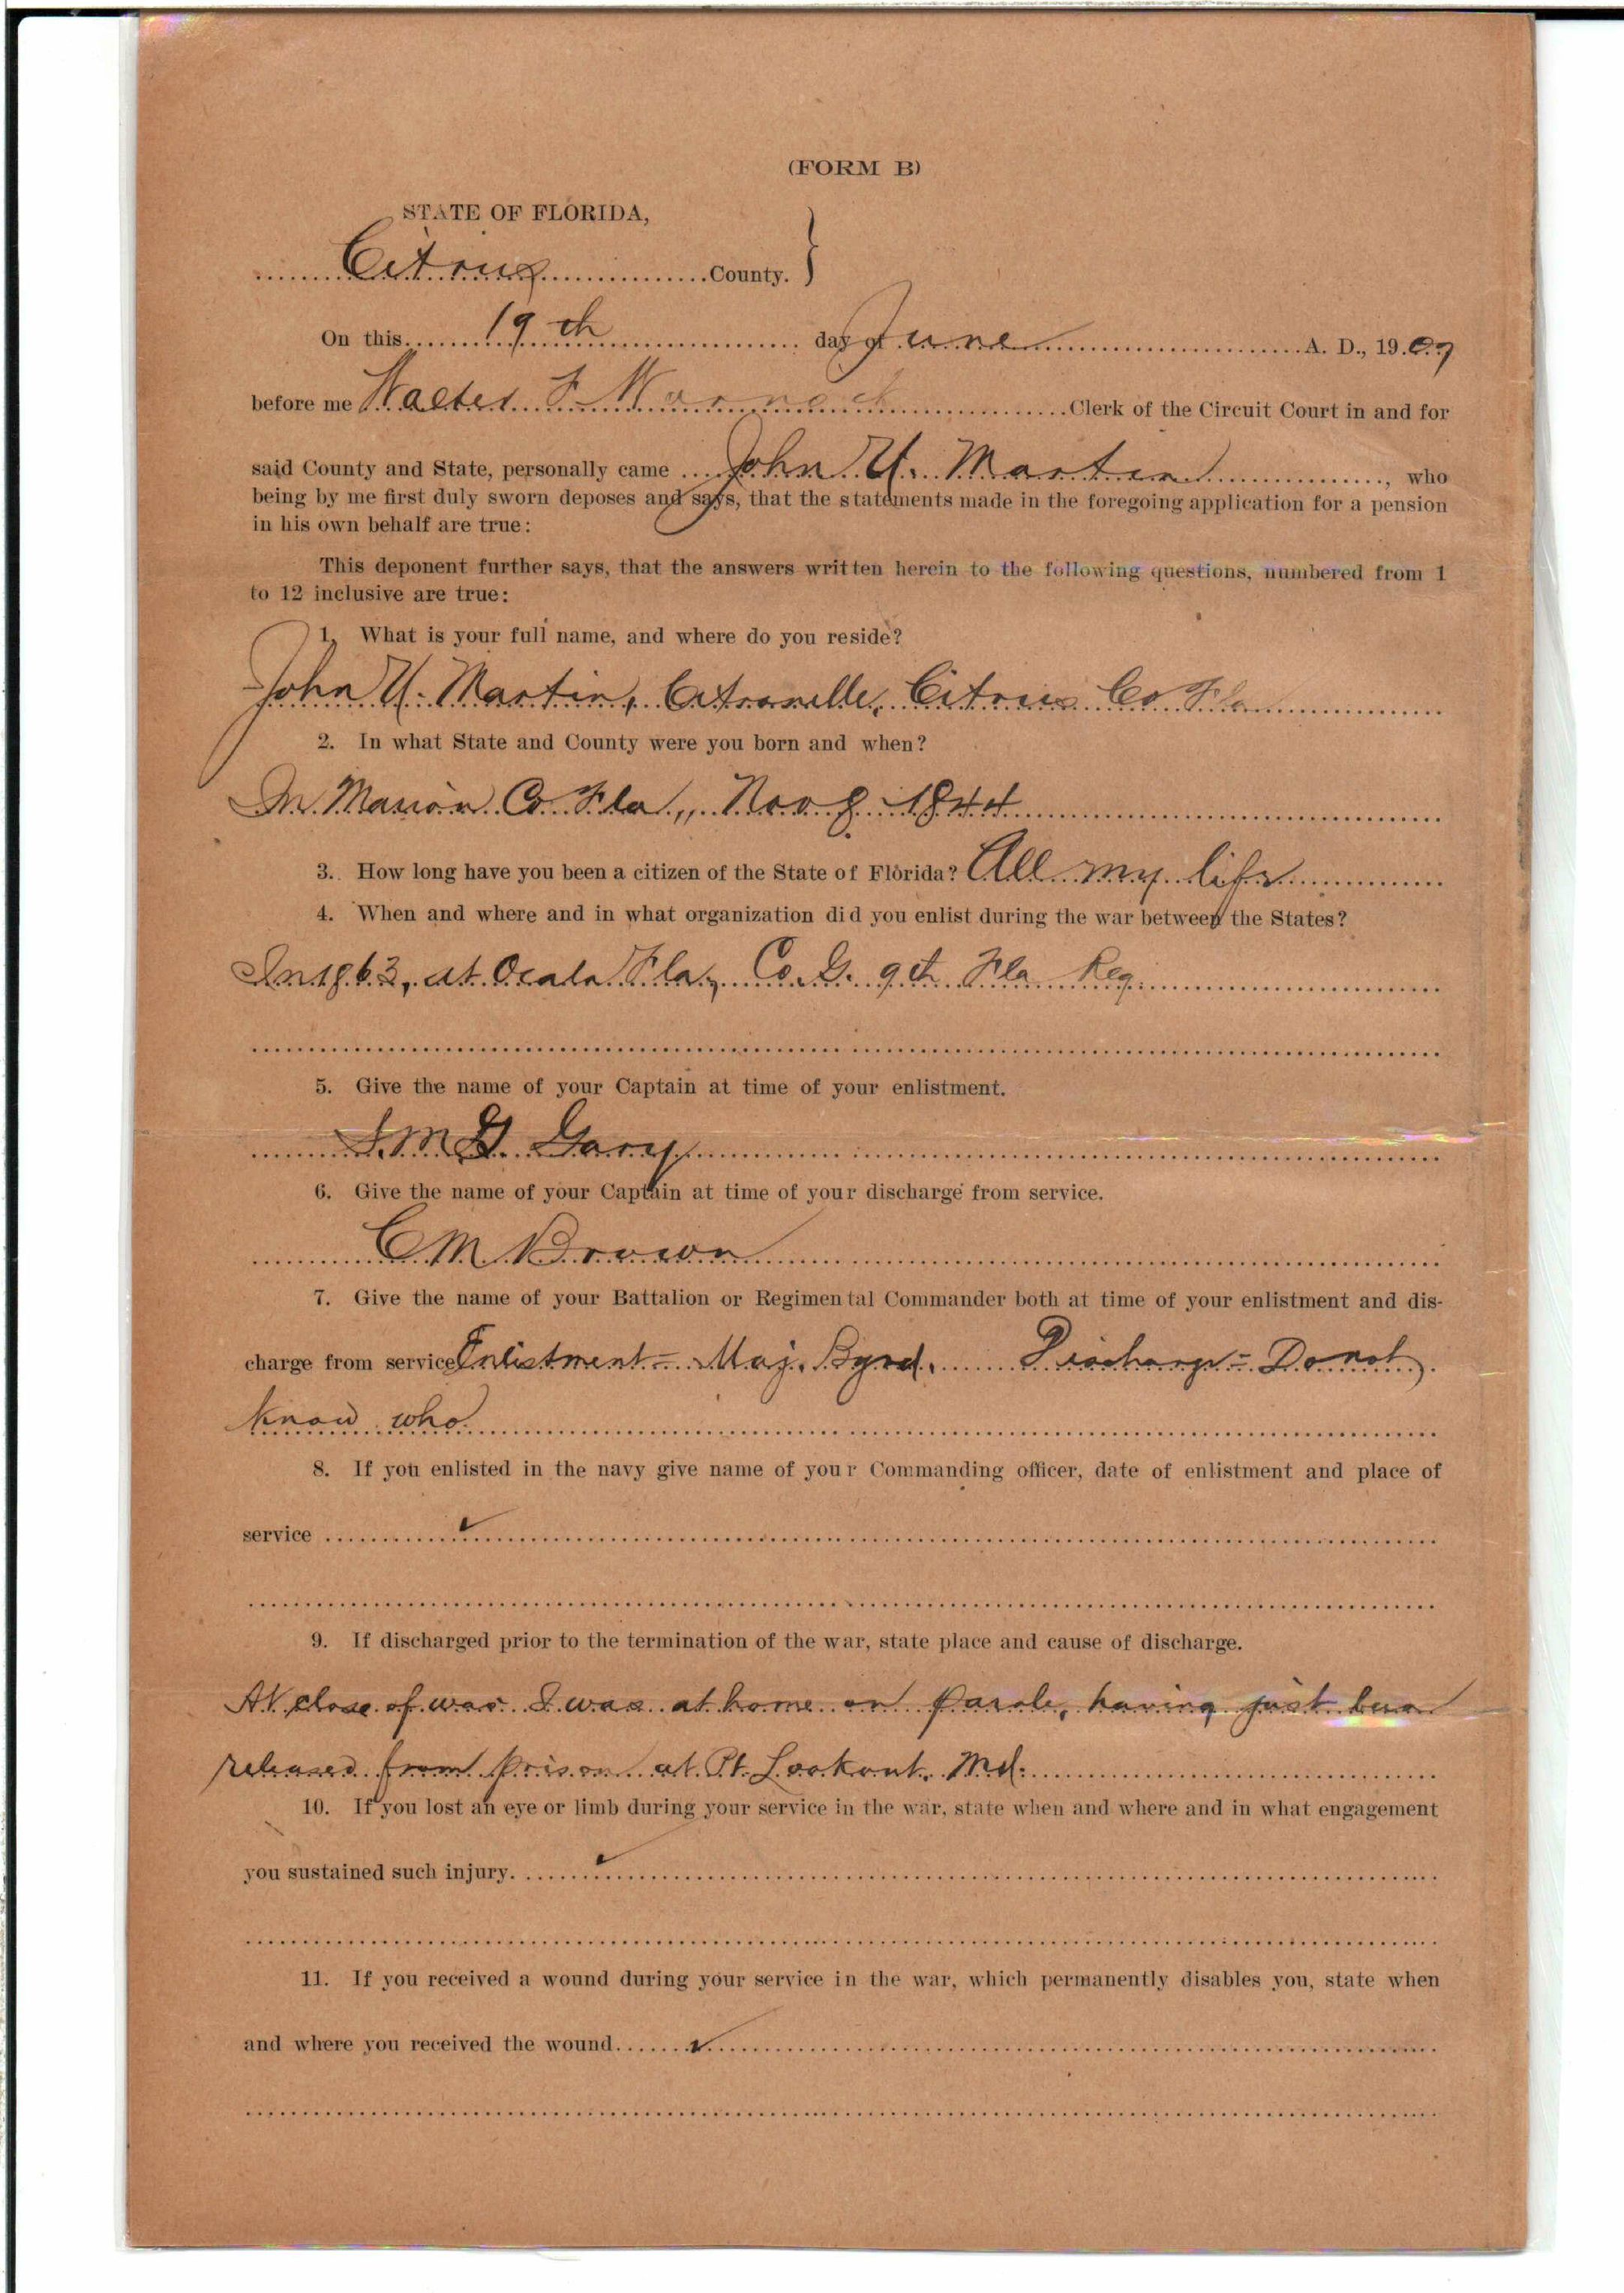 (FORM B)
STATE OF FLORIDA,
Citrus County.
On this 19th day of June A. D., 1907
before me Walter F Warnock Clerk of the Circuit Court in and for
said County and State, personally came John U. Martin, who
being by me first duly sworn deposes and says, that the statements made in the foregoing application for a pension
in his own behalf are true:
This deponent further says, that the answers written herein to the following questions, numbered from 1
to 12 inclusive are true:
1. What is your full name, and where do you reside?
John U. Martin, Citronelle, Citrus Co Fla
2. In what State and County were you born and when?
In Marion Co Fla,, Nov 8. 1844
3. How long have you been a citizen of the State of Florida? All my life
4. When and where and in what organization did you enlist during the war between the States?
In 1863, at Ocala Fla, Co. G. 9th Fla Reg.
5. Give the name of your Captain at time of your enlistment.
S. M. G. Gary
6. Give the name of your Captain at time of your discharge from service.
C M Brown
7. Give the name of your Battalion or Regimental Commander both at time of your enlistment and dis-
charge from service Enlistment - Maj. Byrd. Discharge - Do not
know who
8. If you enlisted in the navy give name of your Commanding officer, date of enlistment and place of
service
9. If discharged prior to the termination of the war, state place and cause of discharge.
At close of war I was at home on parole, having just been
released from prison at Pt. Lookout, Md.
10. If you lost an eye or limb during your service in the war, state when and where and in what engagement
you sustained such injury.
11. If you received a wound during your service in the war, which permanently disables you, state when
and where you received the wound